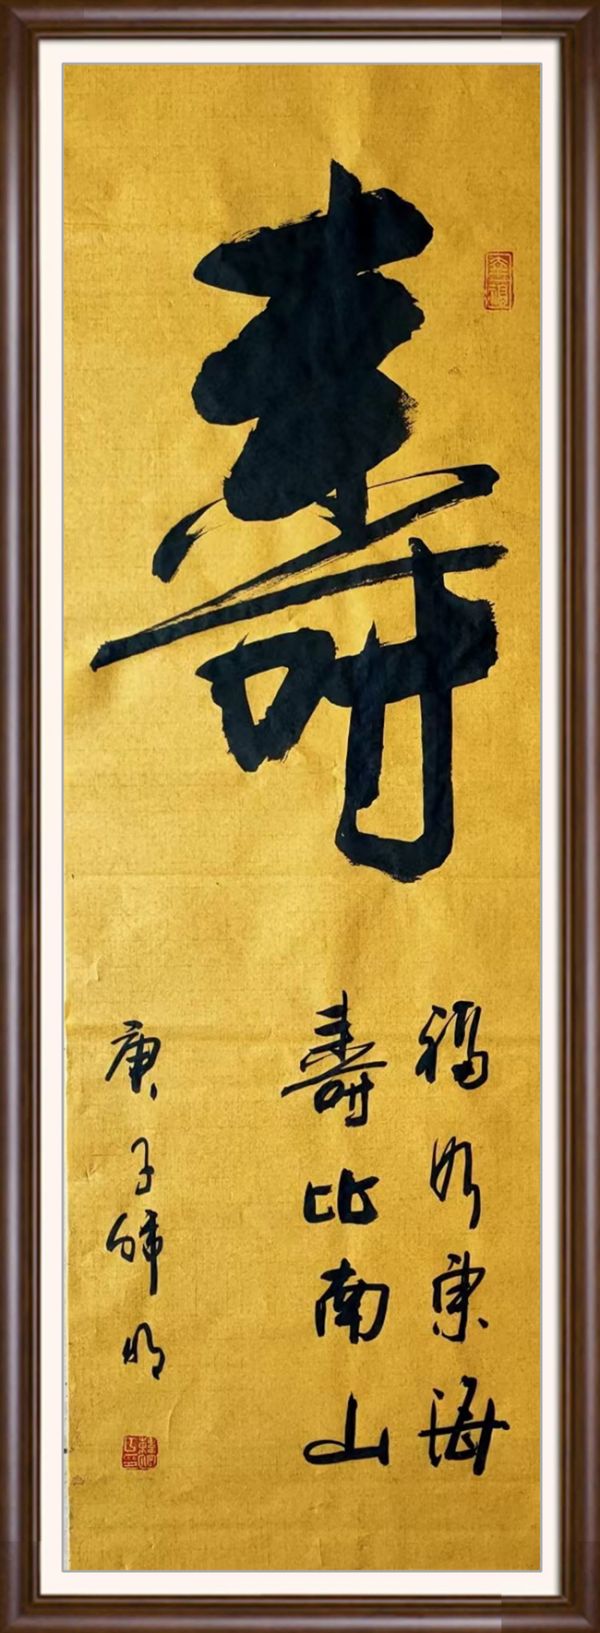 壽
福如東海
壽比南山
庚子 明